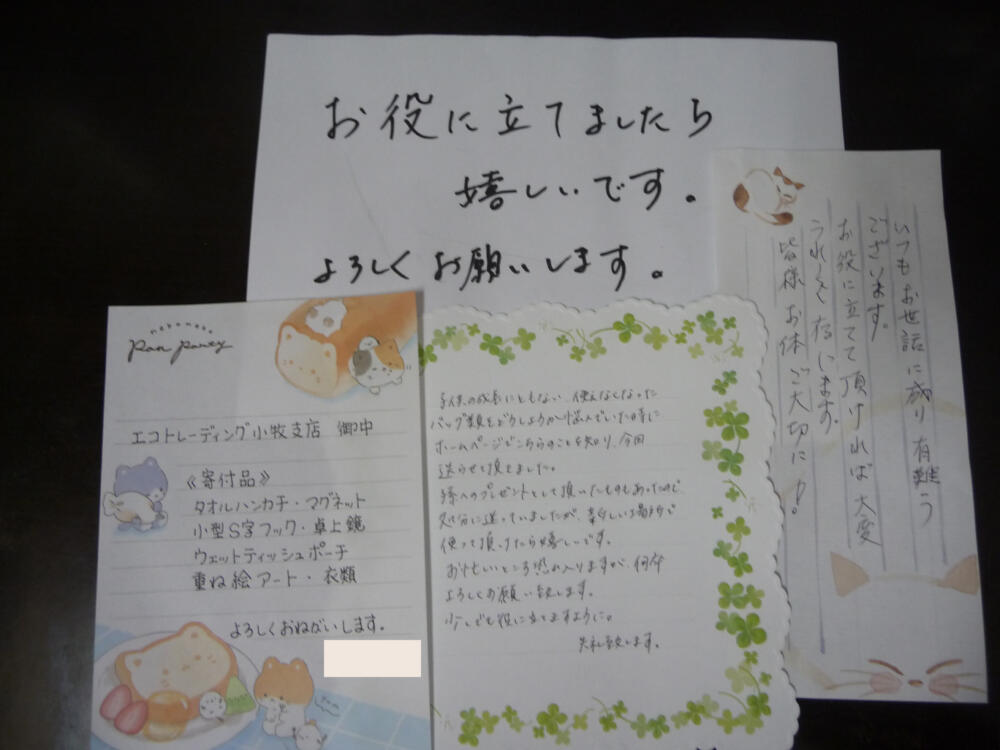 お役に立てましたら
嬉しいです。
よろしくお願いします。
いつもお世話に成り有難う
ございます。
お役に立てて頂ければ大変
うれしく存じます。
皆様お体ご大切に!
nekomoko
Pan Pamey
エコトレーディング小牧支店 御中
《寄付品》
タオルハンカチ・マグネット
小型S字フック・卓上鏡
ウェットティッシュポーチ
重ね絵アート・衣類
よろしくおねがいします。
子供の成長にともない、使えなくなった
バッグ類をどうしようか悩んでいた時に
ホームページでこちらのことを知り、今回
送らせて頂きました。
孫へのプレゼントとして頂いたものもあったので、
処分に迷っていましたが、新しい場所で
使って頂けたら嬉しいです。
お忙しいところ恐れ入りますが、何卒
よろしくお願い致します。
少しでも役に立てますように。
失礼致します。